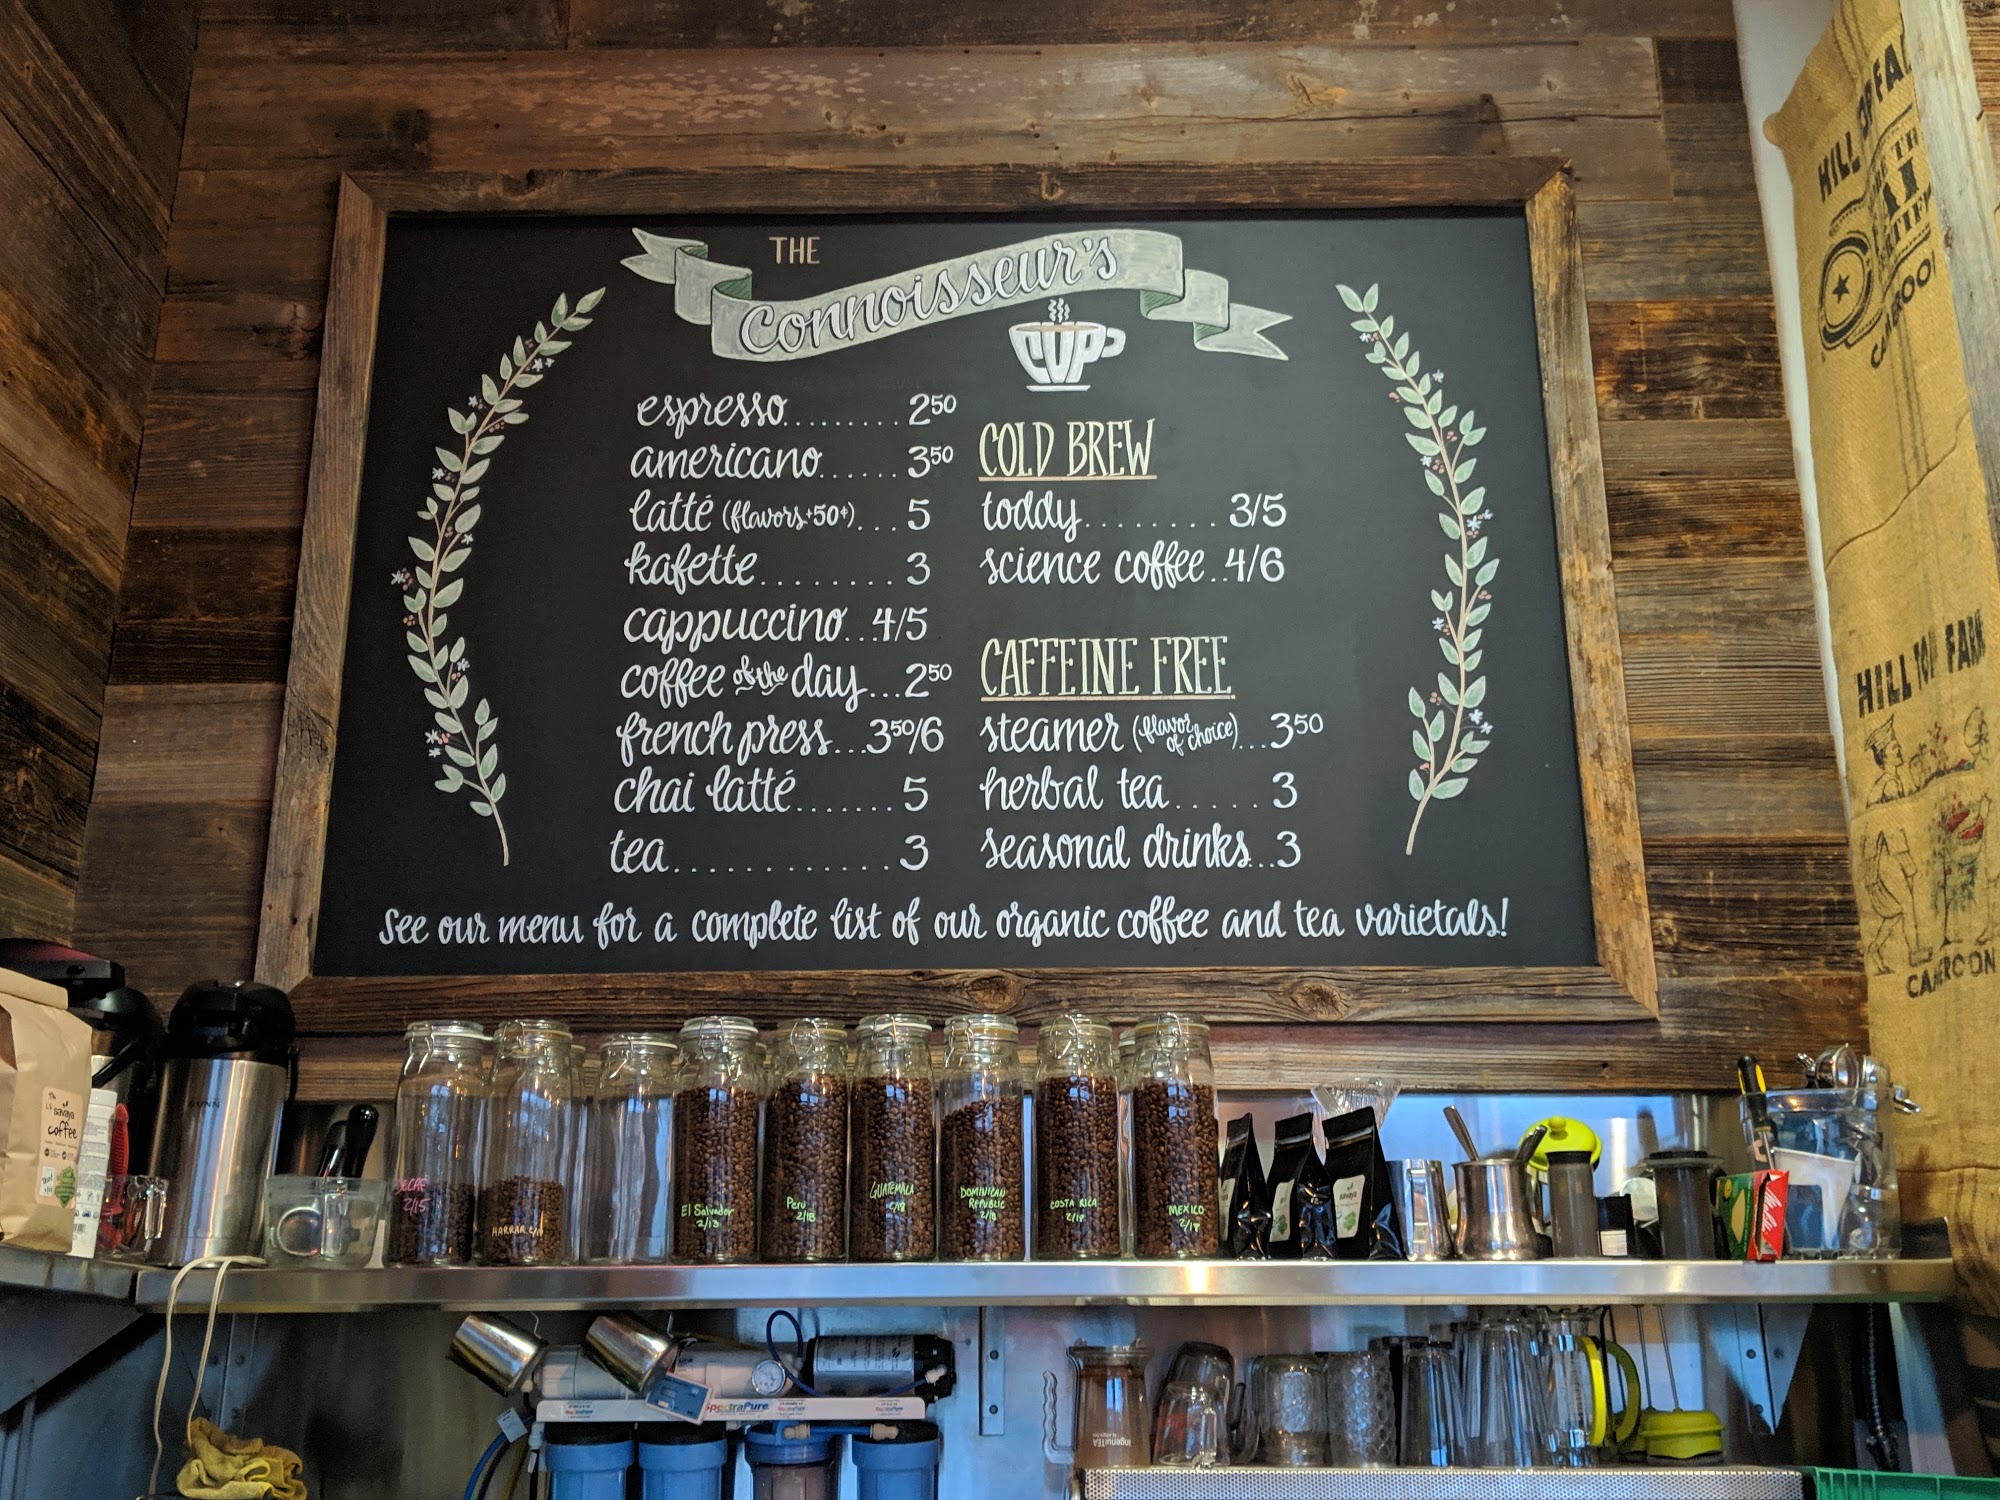 THE
Connoisseur's
CUP
espresso......... 2⁵⁰
americano...... 3⁵⁰
latté (flavors +50¢)... 5
kafette........ 3
cappuccino.. 4/5
coffee of the day... 2⁵⁰
french press... 3⁵⁰/6
chai latté....... 5
tea............ 3
COLD BREW
toddy........ 3/5
science coffee.. 4/6
CAFFEINE FREE
steamer (flavor of choice)... 3⁵⁰
herbal tea..... 3
seasonal drinks... 3
See our menu for a complete list of our organic coffee and tea varietals!
HILL TOP
CAMEROON
HILL TOP FARM
CAMEROON
savaya
coffee
BUNN
2/15
HARRAR
El Salvador
2/13
Peru
2/18
GUATEMALA
2/18
DOMINICAN
REPUBLIC
2/18
COSTA RICA
2/18
MEXICO
2/18
savaya
SpectraPure
ingenuiTEA